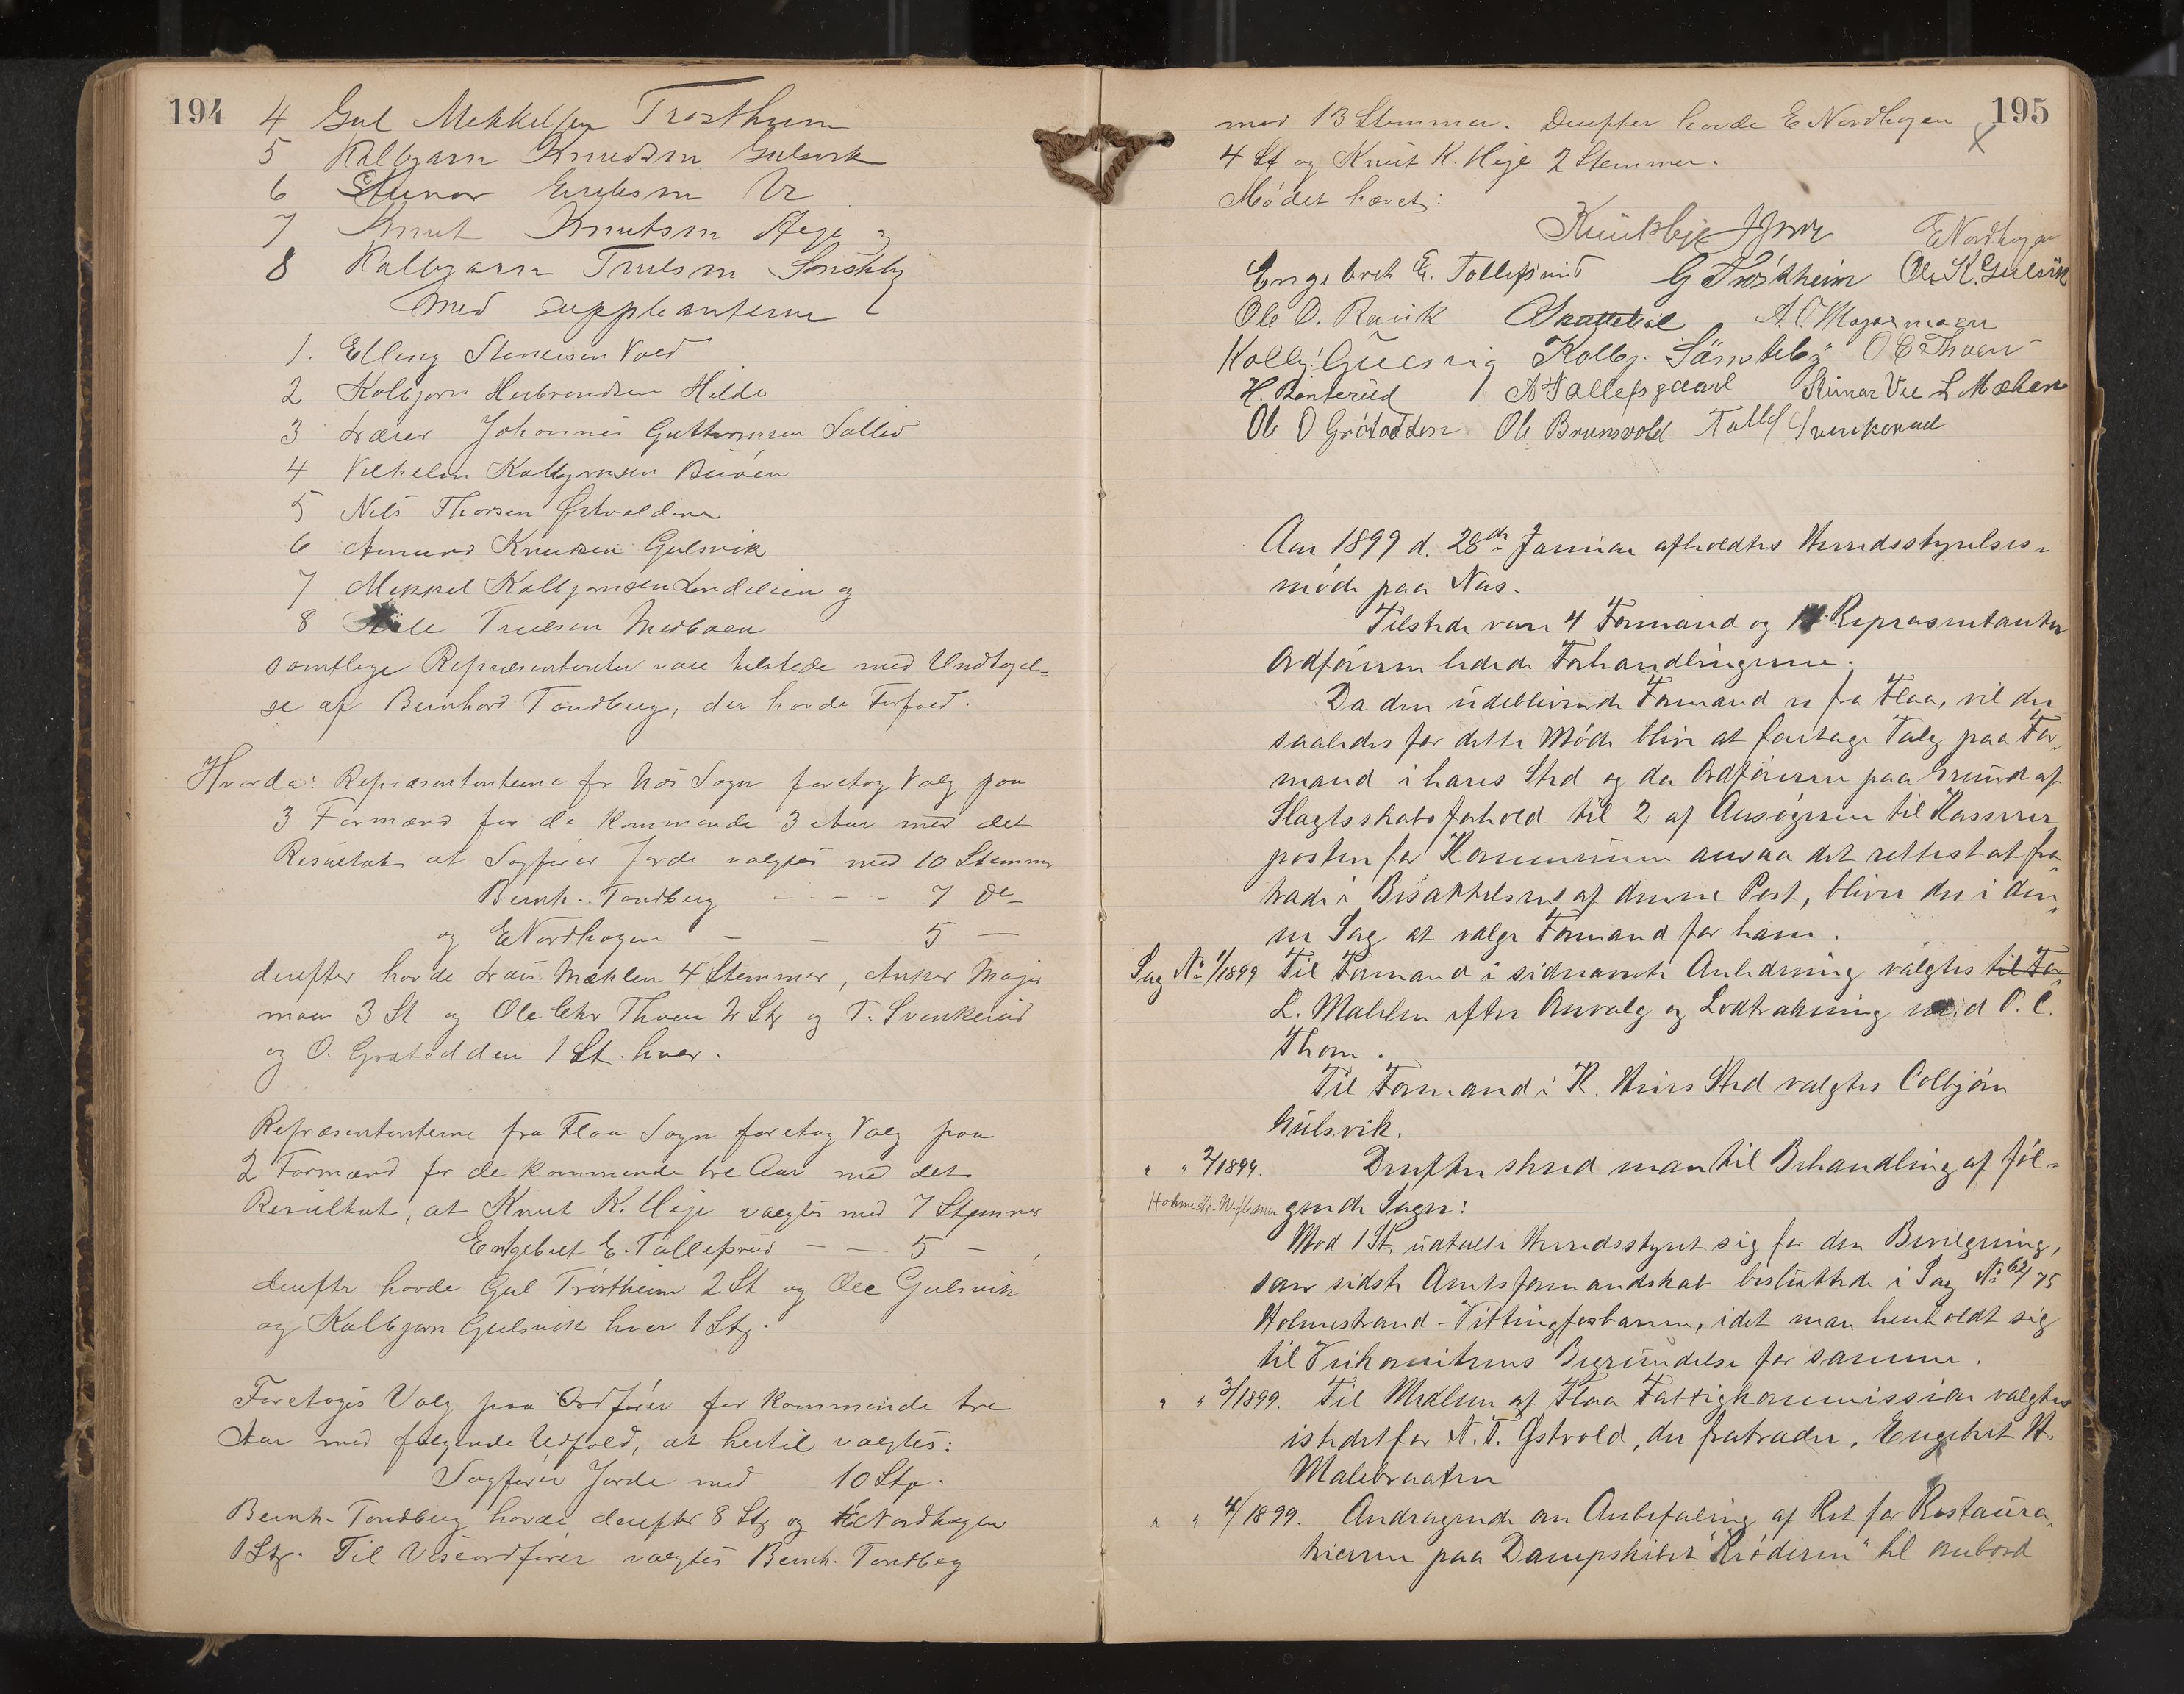 194
4 Gul Mekkelsen Trøstheim
5 Kolbjørn Knudsen Gulsvik
6 Steinar Eriksen Ve
7 Knut Knutsen Heje og
8 Kolbjørn Truelsen Sønsteby
med suppleanterne
1. Elling Steneisen Vold
2 Kolbjørn Herbrandsen Hilde
3 Lærer Johannes Guttormsen Sollid
4 Vilhelm Kolbjørnsen Buøen
5 Nils Thorsen Østvolden
6 Amund Knudsen Gulsvik
7 Mekkel Kolbjørnsen Lindelien og
8 Truelsen Medboen
samtlige Repræsentanter vare tilstede med Undtagel-
se af Bernhard Tandberg, der havde Forfald.
Hvorda: Repræsentanterne for Nes Sogn foretog Valg paa
3 Formænd for de kommende 3 Aar med det
Resultat at Sagfører Jorde valgtes med 10 Stemmer
Bernh. Tandberg - - - - 7 do
og E Nordhagen — — 5 —
derefter havde Lars Mæhlen 4 Stemmer, Anker Major
moen 3 St og Ole Chr Thoen 2 St og T. Svenkerud
og O. Grøtodden 1 St. hver.
Repræsentanterne fra Flaa Sogn foretog Valg paa
2 Formænd for de kommende tre Aar med det
Resultat, at Knut K. Heje valgtes med 7 Stemmer
Engebret E. Tollefsrud — — 5 — ,
derefter havde Gul Trøstheim 2 St og Ole Gulsvik
og Kolbjørn Gulsvik hver 1 St.
Foretoges Valg paa Ordfører for kommende tre
Aar med følgende Udfald, at hertil valgtes:
Sagfører Jorde med 10 St.
Bernh. Tandberg havde derefter 8 St og E Nordhagen
1 St. Til Viseordfører valgtes Bernh. Tandberg
195
med 13 Stemmer. Derefter havde E Nordhagen
4 St og Knut K. Heje 2 Stemmer.
Mødet hævet:
Knut Heje J Jorde E Nordhagen
Engebret E. Tollefsrud G Trøstheim Ole K. Gulsvik
Ole O. Ravik A. O. Majormoen
Kolbj. Gulsvig Kolbj. Sønsteby O C Thoen
H. Rønterud A Hallefsgaard Steinar Vee L Mæhlen
Ole O Grøtodden Ole Brunsvold Tollef Svenkerud
Aar 1899 d. 28de Januar afholdtes Herredsstyrelses-
møde paa Næs.
Tilstede vare 4 Formænd og Repræsentanter
Ordføreren ledede Forhandlingerne.
Da den udeblivende Formand er fra Flaa, vil der
saaledes for dette Møde blive at foretage Valg paa For-
mand i hans Sted og da Ordføreren paa Grund af
Slægtsskabsforhold til 2 af Ansøgerne til Kasserer
posten for Kommunen ansaa det rettest at fra
træde i Besættelsen af denne Post, bliver der i den-
ne Sag at vælge Formand for ham.
Sag No 1/1899 Til Formand i sidnævnte Anledning valgtes til For
L. Mæhlen efter Omvalg og Lodtrækning med O. C.
Thoen.
Til Formand i K. Heies Sted valgtes Colbjørn
Gulsvik.
" " 2/1899. Derefter skred man til Behandling af føl-
gende Sager:
Mod 1 St. udtalte Herredsstyret sig for den Bevilgning,
som sidste Amtsformandskab besluttede i Sag No 62/75
Holmestrand-Vittingfosbanen, idet man henholdt sig
til Veikomiteens Begrundelse for samme.
" " 3/1899. Til Medlem af Flaa Fattigkommission valgtes
istedetfor N. T. Østvold, der fratræder, Engebret H.
Malebraaten
" " 4/1899. Andragende om Anbefaling af Ret for Restaura-
tricen paa Dampskibet "Krøderen" til ombord